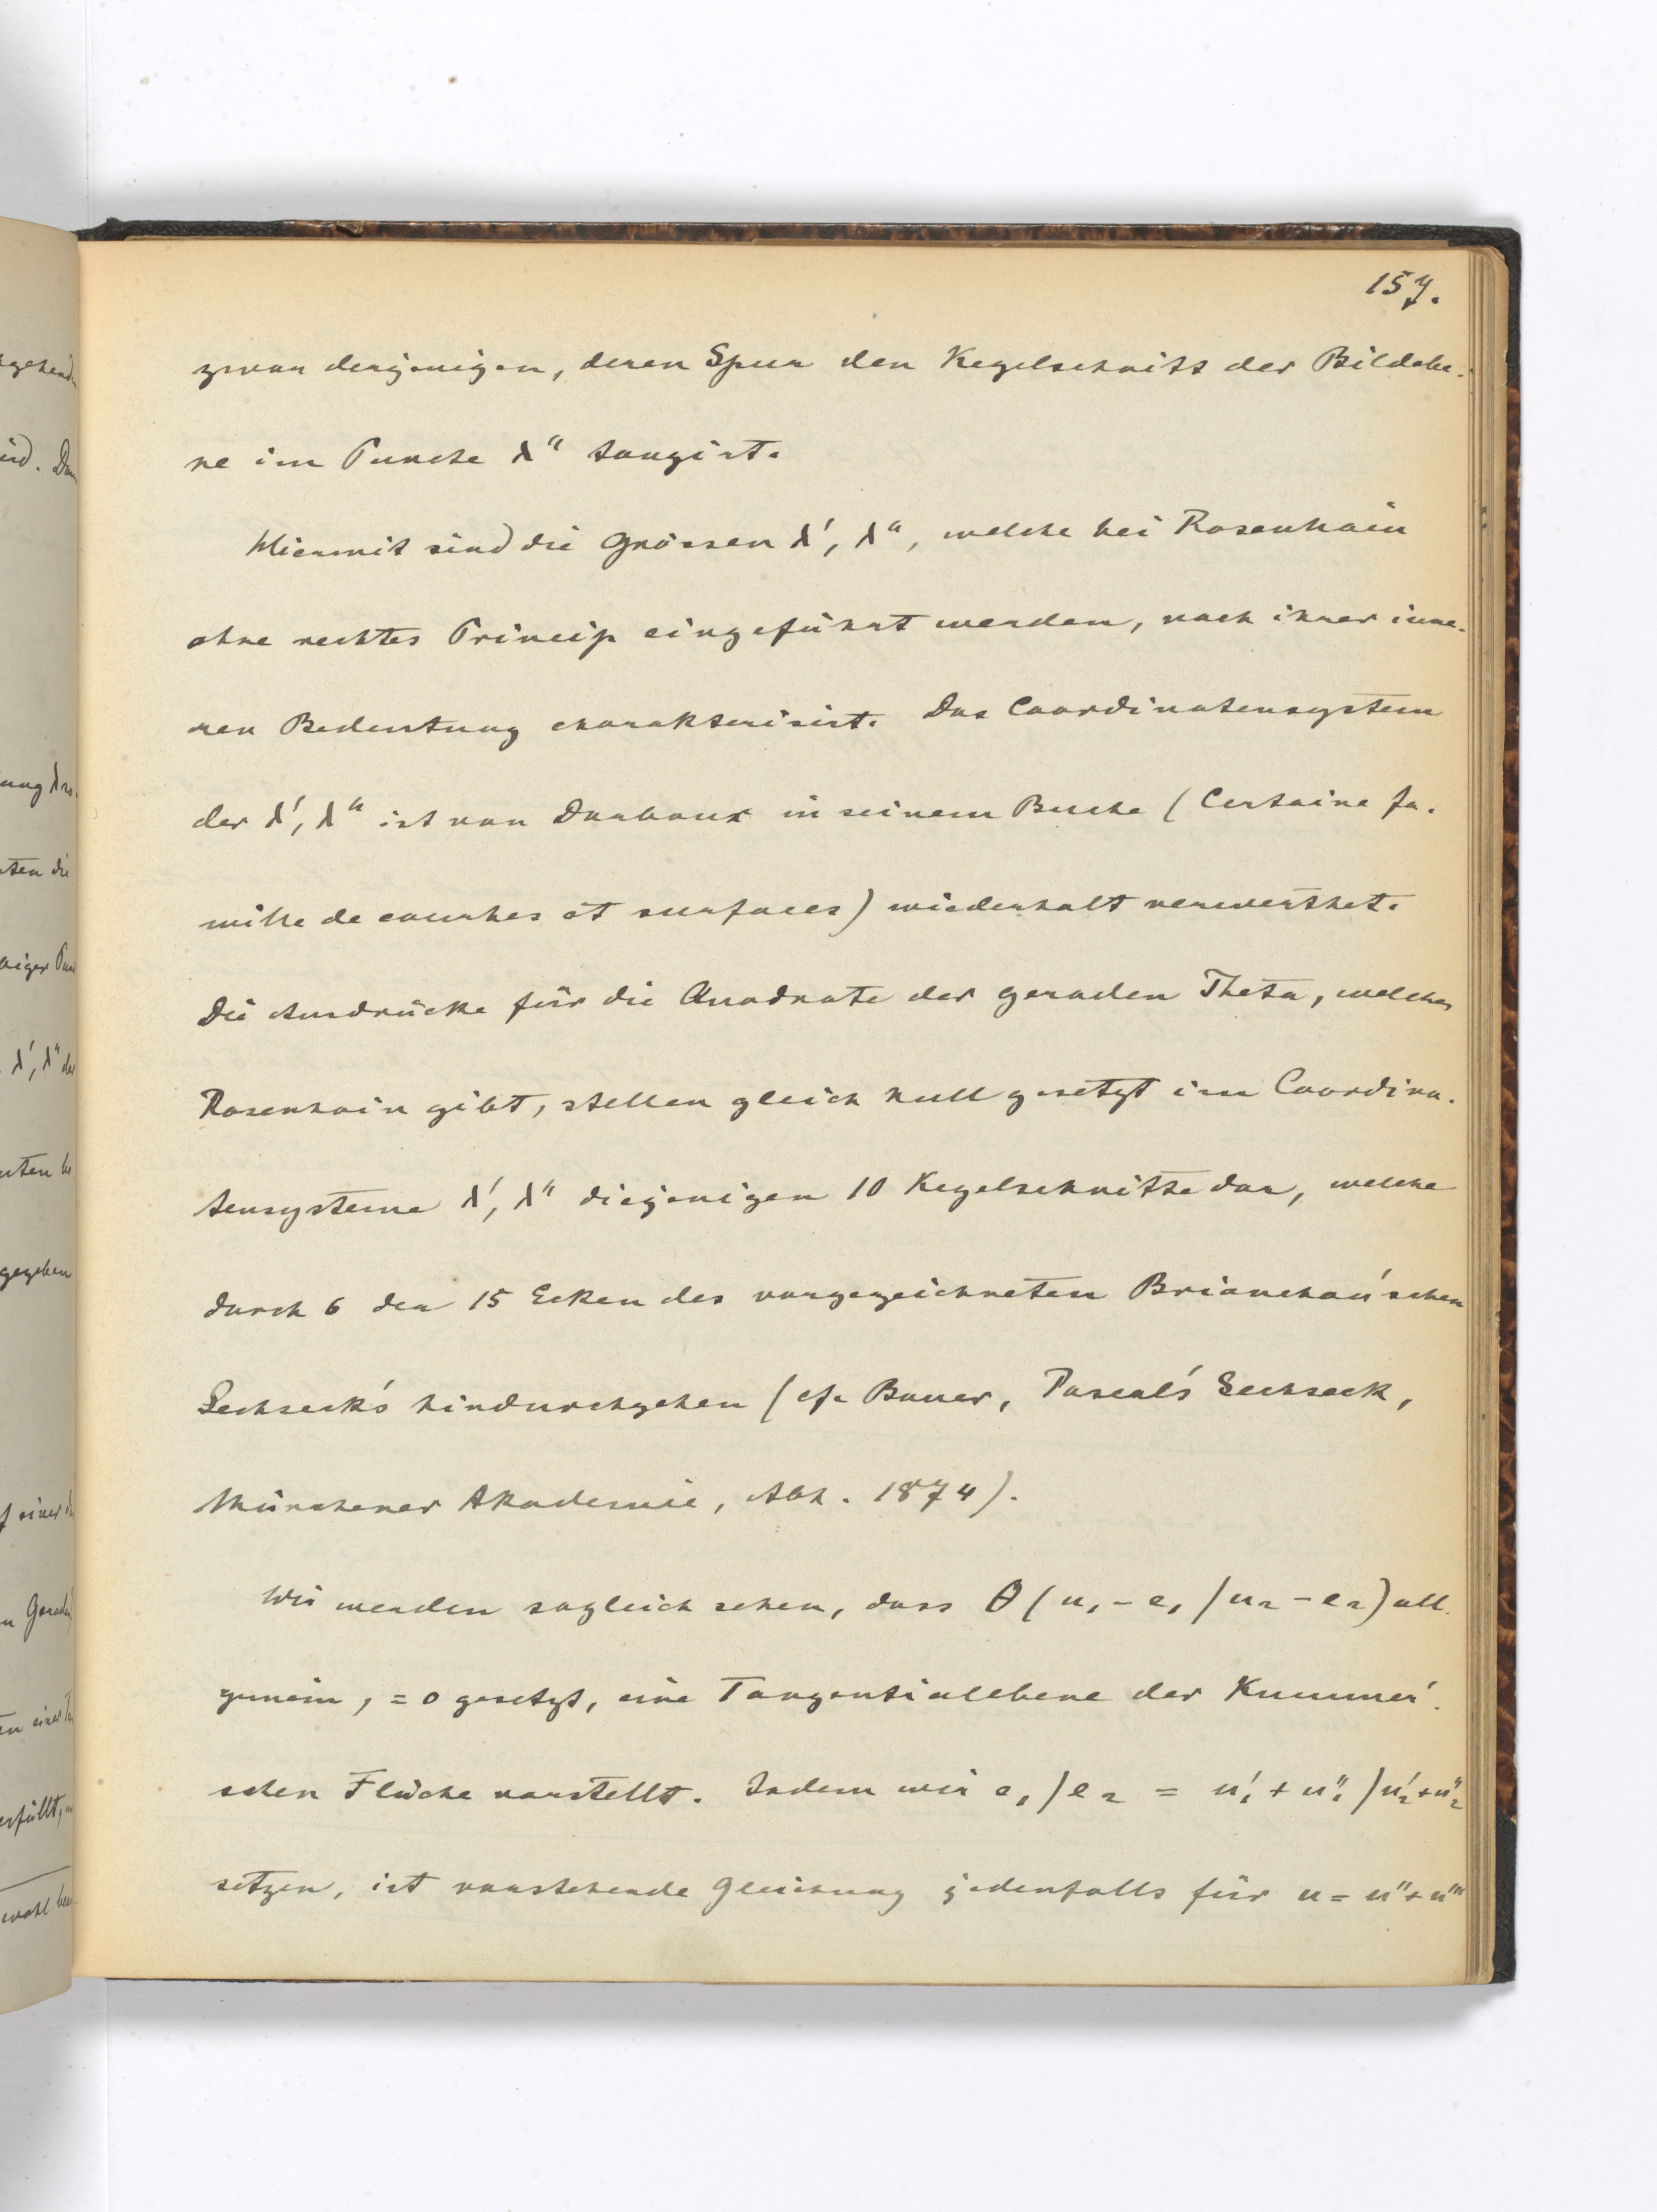 157.
zwar derjenigen, deren Spur den Kegelschnitt der Bildebe-
ne im Puncte λ" tangirt.
Hiermit sind die Grössen λ', λ", welche bei Rosenhain
ohne rechtes Princip eingeführt werden, nach ihrer inne-
ren Bedeutung charakterisirt. Das Coordinatensystem
der λ', λ" ist von Darboux in seinem Buche (Certaine fa-
mille de courbes et surfaces) wiederholt verwerthet.
Die Ausdrücke für die Quadrate der geraden Theta, welches
Rosenhain gibt, stellen gleich Null gesetzt im Coordina-
tensysteme λ', λ" diejenigen 10 Kegelschnitte dar, welche
durch 6 der 15 Ecken des vorgezeichneten Brianchon'schen
Sechseck's hindurchgehen (cf. Bauer, Pascal's Sechseck,
Münchener Akademie, Abh. 1874).
Wir werden sogleich sehen, dass θ(u₁-e₁/u₂-e₂) all-
gemein, =0 gesetzt, eine Tangentialebene der Kummer'-
schen Fläche vorstellt. Indem wir e₁/e₂ = u'₁+u"₁/u'₂+u"₂
setzen, ist vorstehende Gleichung jedenfalls für u = u"+u'"
gehend
ird. Dan
ung
ten die
biger Pun
λ', λ" der
gegeben
f einer
n Gerade
en einer
erfüllt,
wohl